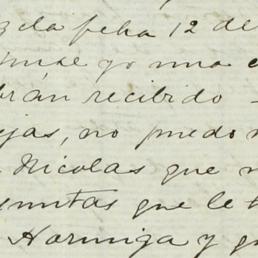 la fecha 12 de
yo una
brán recibido
jas, no puedo
Nicolas que
que le
Hormiga y